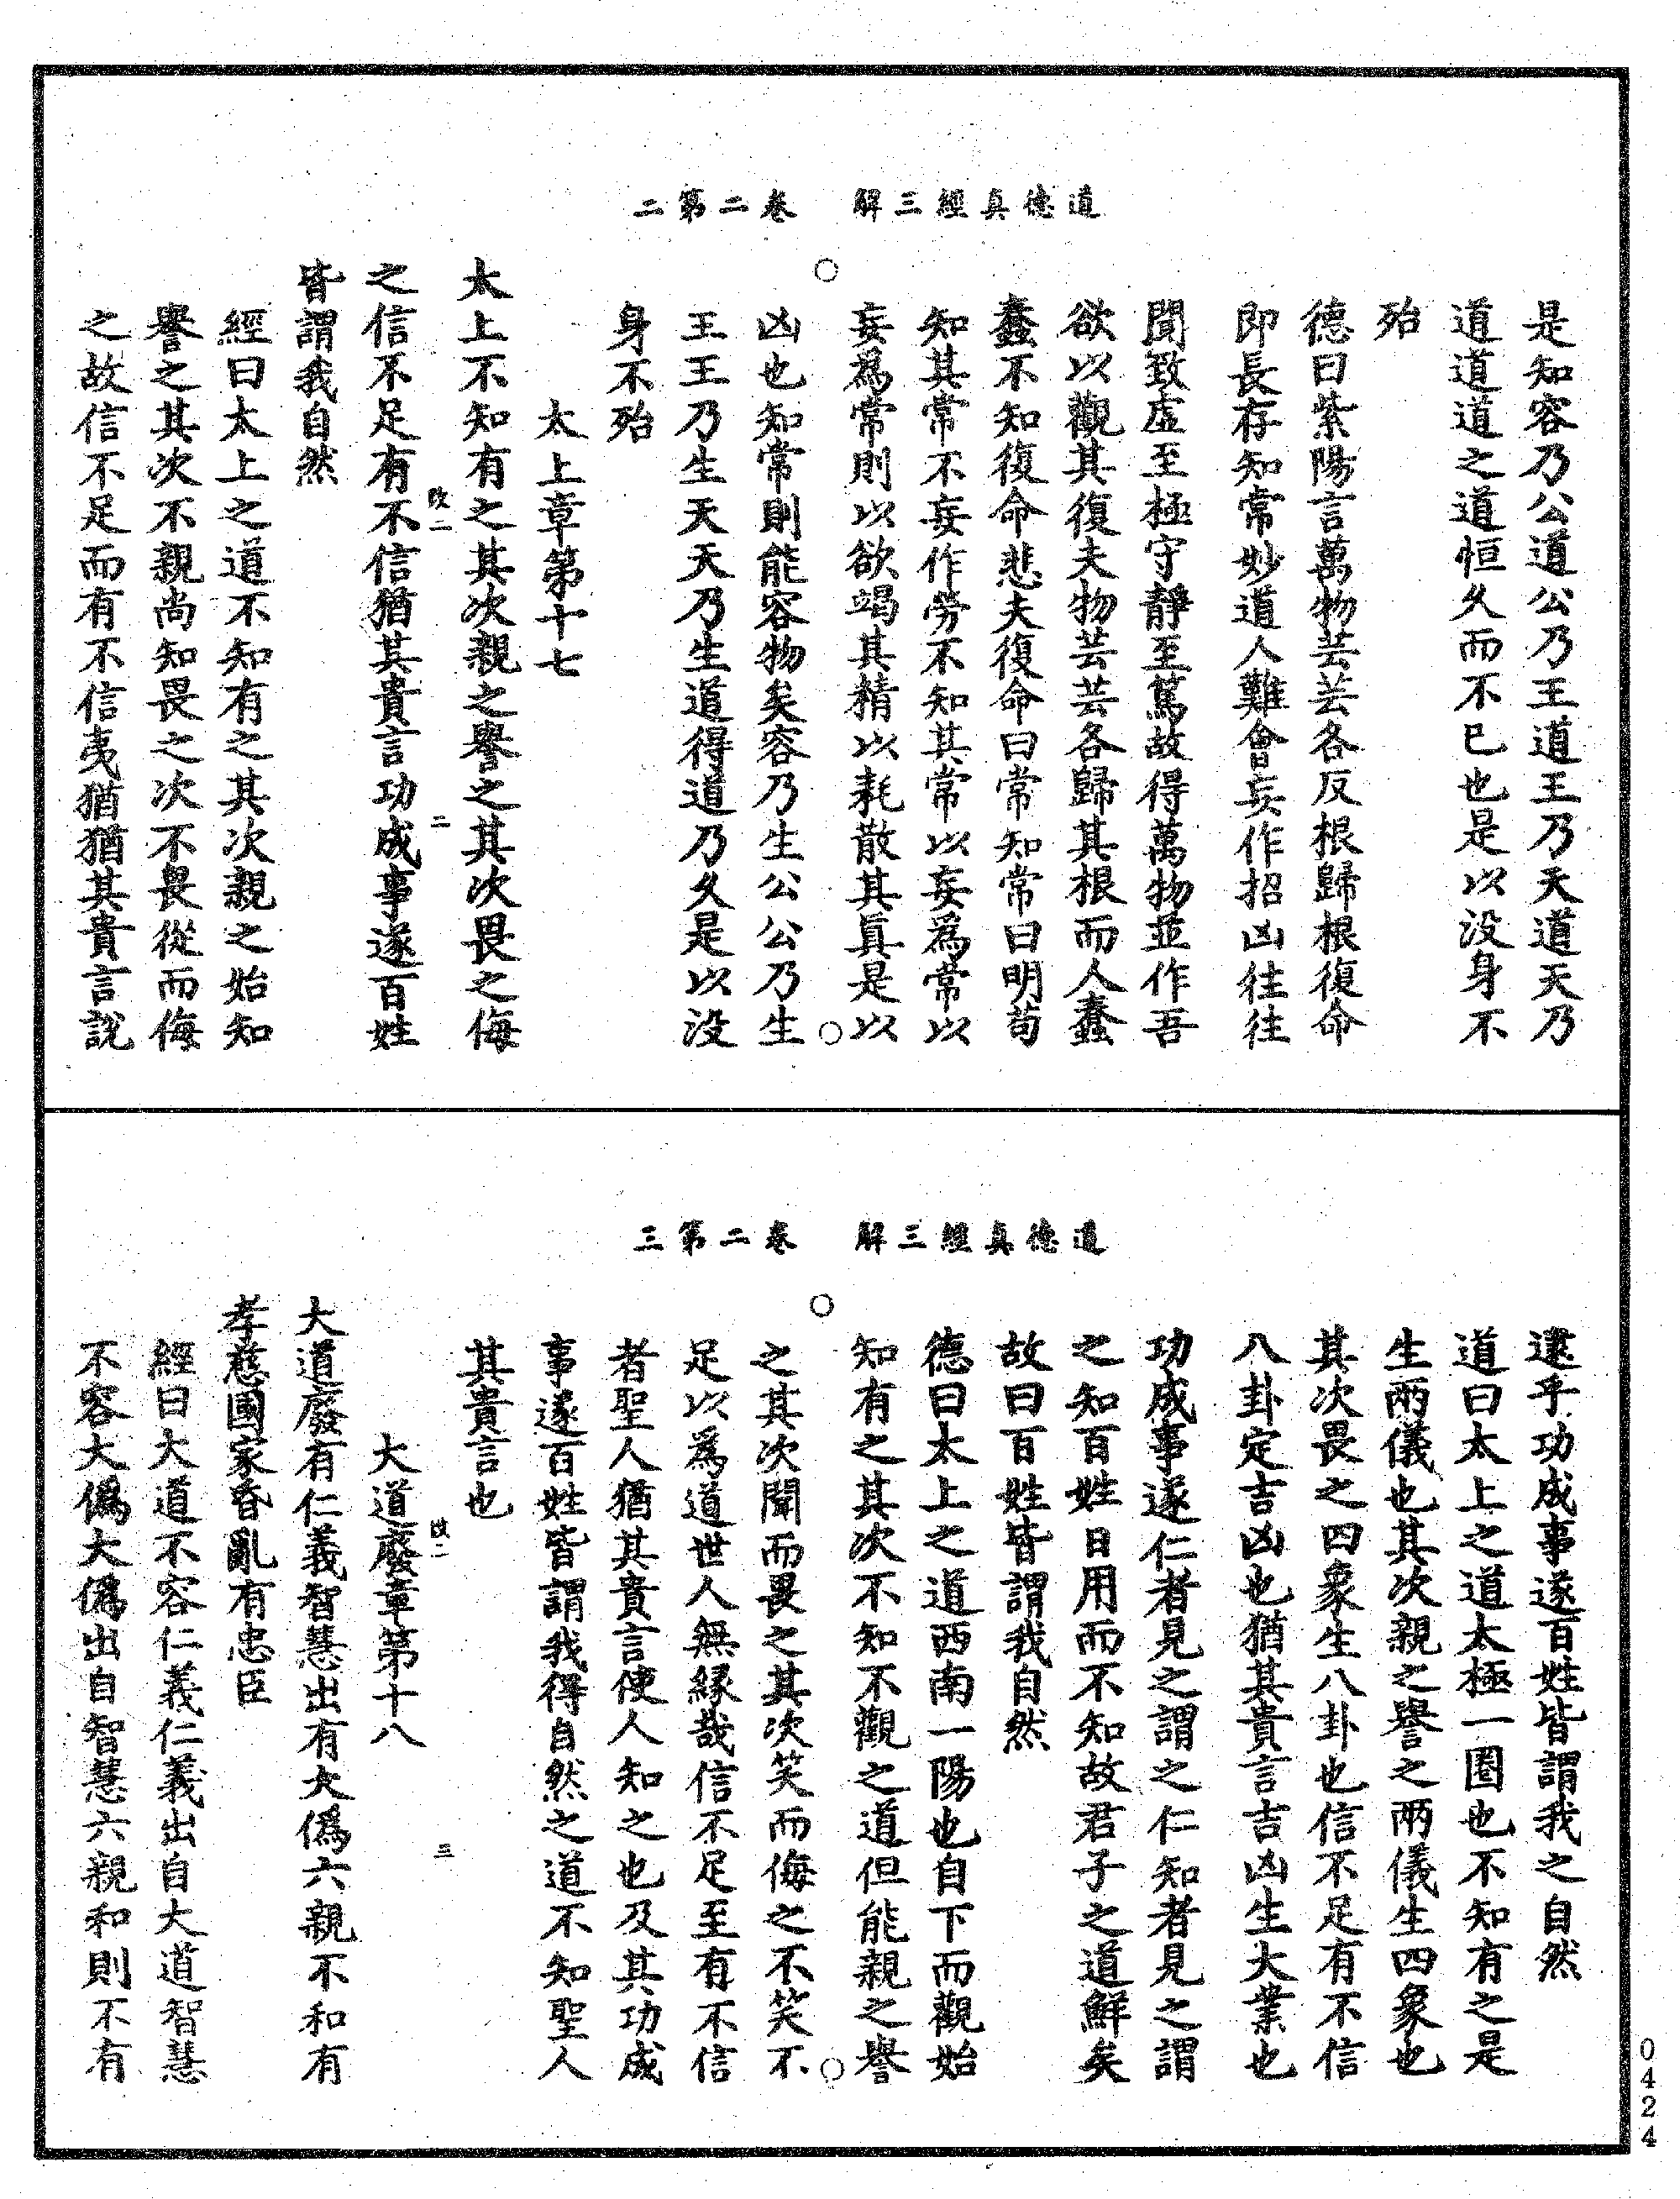 道德真經三解　卷二第二
是知容乃公道公乃王道王乃天道天乃
道道道之道恒久而不已也是以没身不
殆
德曰紫陽言萬物芸芸各反根歸根復命
即長存知常妙道人難會妄作招凶往往
聞致虛至極守靜至篤故得萬物並作吾
欲以觀其復夫物芸芸各歸其根而人蠢
蠢不知復命悲夫復命曰常知常曰明苟
知其常不妄作勞不知其常以妄為常以
妄為常則以欲竭其精以耗散其真是以
凶也知常則能容物矣容乃生公公乃生
王王乃生天天乃生道得道乃久是以没
身不殆
太上章第十七
太上不知有之其次親之譽之其次畏之侮
之信不足有不信猶其貴言功成事遂百姓
改二　二
皆謂我自然
經曰太上之道不知有之其次親之始知
譽之其次不親尚知畏之次不畏從而侮
之故信不足而有不信夷猶猶其貴言說
道德真經三解　卷二第三
逮乎功成事遂百姓皆謂我之自然
道曰太上之道太極一圈也不知有之是
生兩儀也其次親之譽之兩儀生四象也
其次畏之四象生八卦也信不足有不信
八卦定吉凶也猶其貴言吉凶生大業也
功成事遂仁者見之謂之仁知者見之謂
之知百姓日用而不知故君子之道鮮矣
故曰百姓皆謂我自然
德曰太上之道西南一陽也自下而觀始
知有之其次不知不觀之道但能親之譽
之其次聞而畏之其次笑而侮之不笑不
足以為道世人無緣哉信不足至有不信
者聖人猶其貴言使人知之也及其功成
事遂百姓皆謂我得自然之道不知聖人
其貴言也
大道廢章第十八
改二　三
大道廢有仁義智慧出有大偽六親不和有
孝慈國家昏亂有忠臣
經曰大道不容仁義仁義出自大道智慧
不容大偽大偽出自智慧六親和則不有
0424